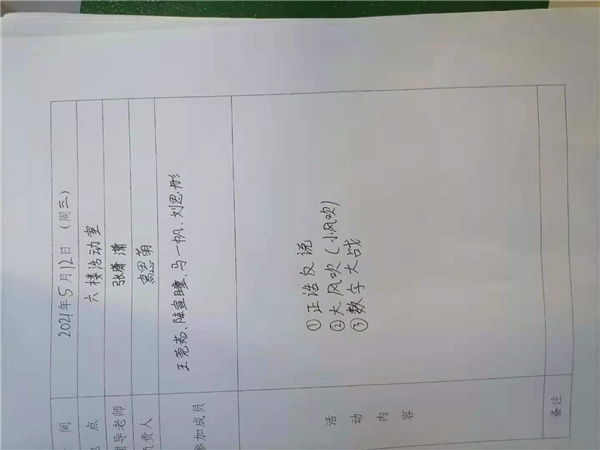 间 2021年5月12日（周三）
点 六楼活动室
辅导老师 张 潇
负责人 高思萌
参加成员 王莞茹、陈宣瞳、马一帆、刘思彤
活动内容 ①正话反说
②大风吹（小风吹）
③数字大战
备注